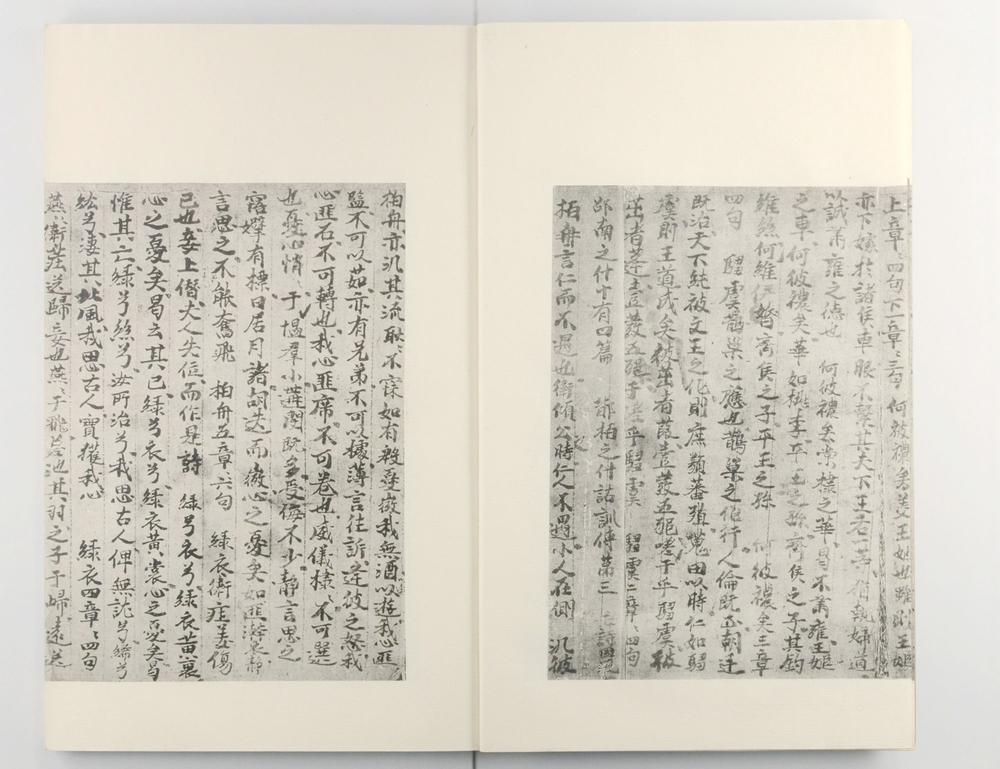 上章、四句下一章、三句 何彼襛矣美王姬也雖則王姬
亦下嫁於諸侯車服不繫其夫下王后一等猶執婦道
以誠肅雍之德也 何彼襛矣棠棣之華曷不肅雍王姬
之車何彼襛矣華如桃李平王之孫齊侯之子其釣
維絲伊緡齊侯之子平王之孫 何彼襛矣三章
四句 騶虞鵲巢之應也鵲巢之化行人倫既正朝廷
既治天下純被文王之化則庶類蕃殖蒐田以時仁如騶
虞則王道成矣彼茁者葭壹發五豝嗟于乎騶虞彼
茁者蓬壹發五豵于嗟乎騶虞 騶虞二章、四句
邵南之什十有四篇 邶柏之什詁訓傳第三
柏舟言仁而不遇也衛頃公時仁人不遇小人在側 汎彼
柏舟亦汎其流耿不寐如有殷憂微我無酒以遊我心匪
監不可以茹亦有兄弟不可以據薄言往訴逢彼之怒我
心匪石不可轉也我心匪席不可卷也威儀棣、不可選
也憂心悄、于慍羣小覯閔既多受侮不少靜言思之
寤擗有摽日居月諸胡迭而微心之憂矣如匪澣衣靜
言思之不能奮飛 柏舟五章、六句 綠衣衛莊姜傷
己也妾上僭夫人失位而作是詩 綠兮衣兮綠衣黃裏
心之憂矣曷云其已綠兮衣兮綠衣黃裳心之憂矣曷
惟其亡綠兮絲兮汝所治兮我思古人俾無訧兮絺兮
綌兮淒其北風我思古人實獲我心 綠衣四章、四句
燕、衛莊送歸妾也燕、于飛差池其羽之子于歸遠送